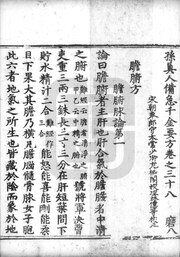 孫真人備急千金要方卷之三十八　磨八
宋朝奉郎守太常少卿充秘閣校理林億等校正
膽腑方
膽腑脉論第一
論曰膽腑者主肝也肝合氣於膽膽者中清
之腑也
號將軍決曹
吏重三兩三銖長三寸三分在肝短葉間下
貯水精汁二合
能怒能喜能剛能柔
目下果大其膽乃橫見膽腦髓骨脉女子胞
此六者地氣之所生也皆藏於陰而象於地